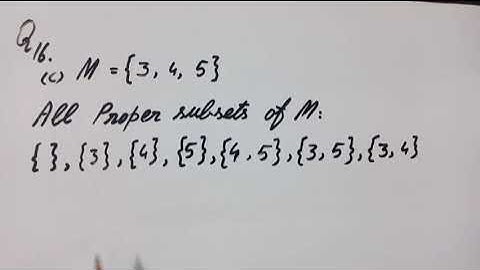 Q16.
(c) M = {3, 4, 5}
All Proper subsets of M:
{ }, {3}, {4}, {5}, {4, 5}, {3, 5}, {3, 4}